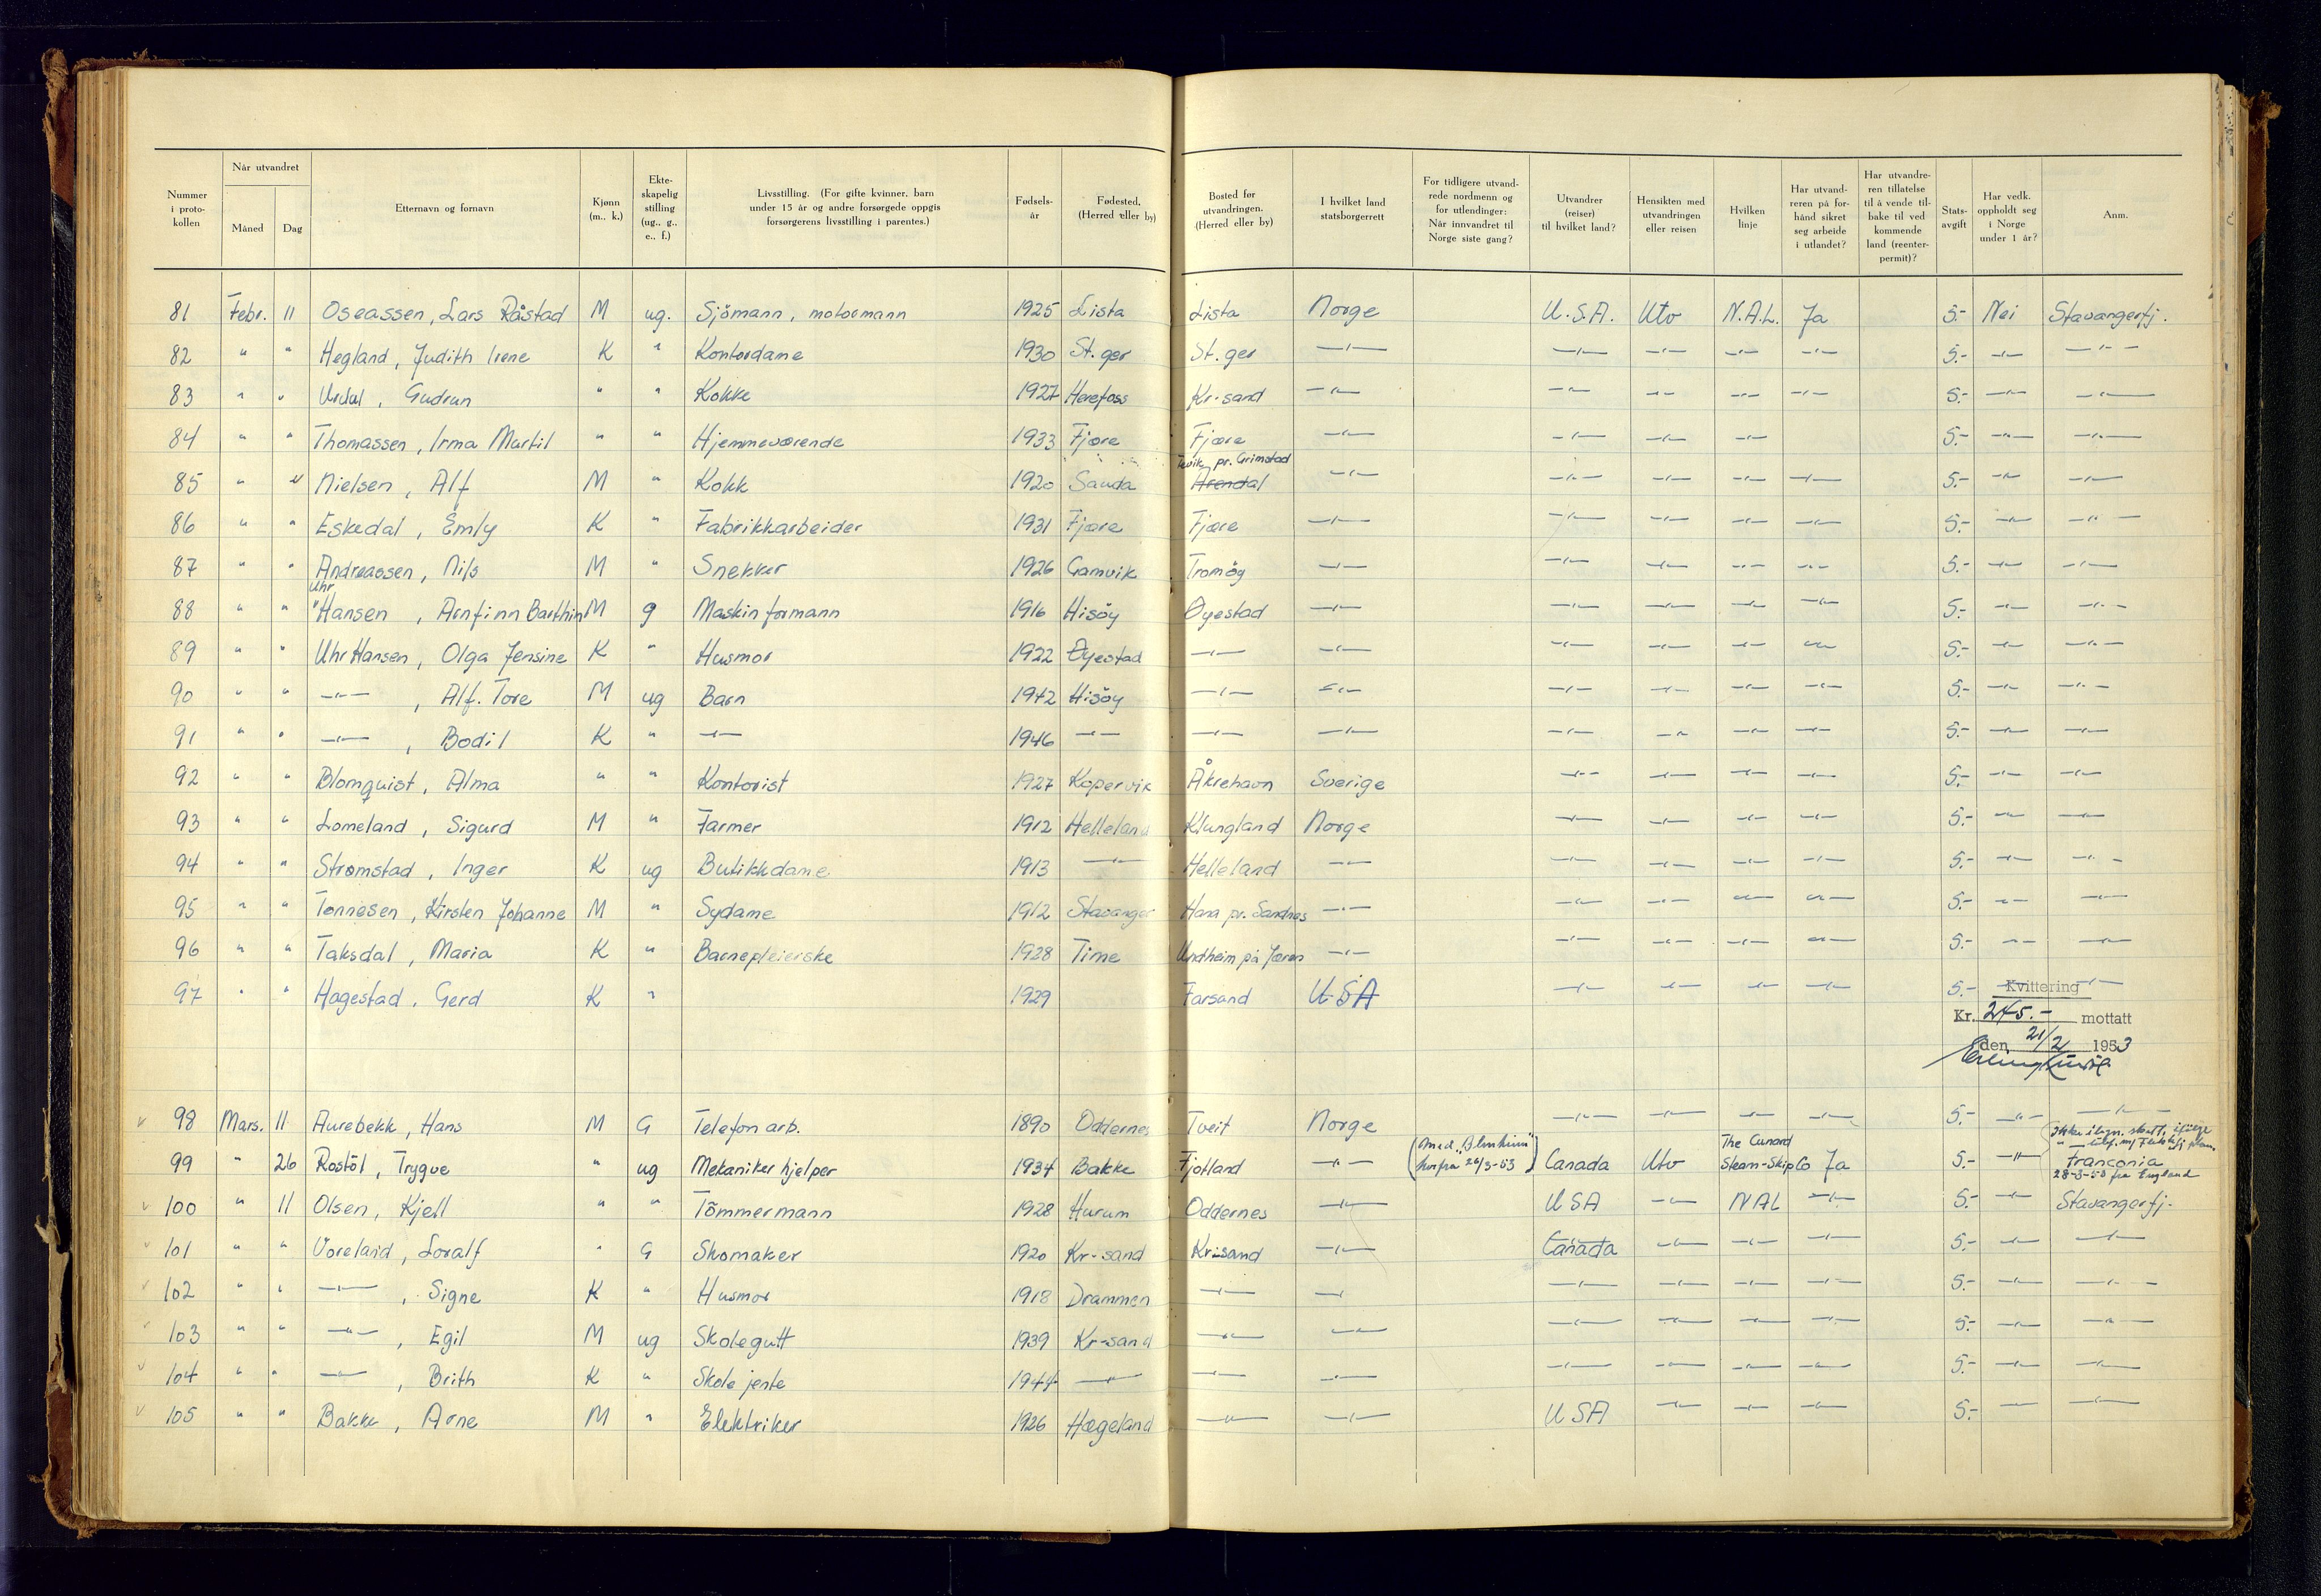 Nummer i proto-kollen | Når utvandret | Måned | Dag | Etternavn og fornavn | Kjønn (m., k.) | Ekte-skapelig stilling (ug., g., e., f.) | Livsstilling. (For gifte kvinner, barn under 15 år og andre forsørgede oppgis forsørgerens livsstilling i parentes.) | Fødsels-år | Fødested. (Herred eller by) | Bosted før utvandringen. (Herred eller by) | I hvilket land statsborgerrett | For tidligere utvand-rede nordmenn og for utlendinger: Når innvandret til Norge siste gang? | Utvandrer (reiser) til hvilket land? | Hensikten med utvandringen eller reisen | Hvilken linje | Har utvand-reren på for-hånd sikret seg arbeide i utlandet? | Har utvandre-ren tillatelse til å vende til-bake til ved kommende land (reenter-permit)? | Stats-avgift | Har vedk. oppholdt seg i Norge under 1 år? | Anm.
81 Febr. 11 Oseassen, Lars Råstad M ug. Sjömann, motormann 1925 Lista Lista Norge U.S.A. Utv N.A.L. Ja 5.- Nei Stavangerfj.
82 " " Hegland, Judith Irene K " Kontordame 1930 St.ger St.ger —"— —"— —"— —"— —"— 5.- —"— —"—
83 " " Urdal, Gudrun " " Kokke 1927 Herefoss Kr.sand —"— —"— —"— —"— —"— 5.- —"— —"—
84 " " Thomassen, Irma Martil " " Hjemmeværende 1933 Fjære Fjære —"— —"— —"— —"— 5.- —"— —"—
pr. Grimstad
85 " " Nielsen, Alf M " Kokk 1920 Sauda Arendal —"— —"— —"— —"— —"— 5.- —"— —"—
86 " " Eskedal, Emly K " Fabrikkarbeider 1931 Fjære Fjære —"— —"— —"— —"— —"— 5.- —"— —"—
87 " " Andreassen, Nils M " Snekker 1926 Gamvik Tromöy —"— —"— —"— —"— —"— 5.- —"— —"—
Uhr
88 " " "Hansen, Arnfinn Barthin M g Maskinformann 1916 Hisöy Öyestad —"— —"— —"— —"— —"— 5.- —"— —"—
89 " " Uhr Hansen, Olga Jensine K " Husmor 1922 Öyestad —"— —"— —"— —"— —"— —"— 5.- —"— —"—
90 " " —"—, Alf. Tore M ug Barn 1942 Hisöy —"— —"— —"— —"— —"— —"— 5.- —"— —"—
91 " " —"—, Bodil K " —"— 1946 —"— —"— —"— —"— —"— —"— —"— 5.- —"— —"—
92 " " Blomquist, Alma " " Kontorist 1927 Kopervik Åkrehavn Sverige —"— —"— —"— —"— 5.- —"— —"—
93 " " Lomeland, Sigurd M " Farmer 1912 Helleland Klungland Norge —"— —"— —"— —"— 5.- —"— —"—
94 " " Strømstad, Inger K ug Butikkdame 1913 —"— Helleland —"— —"— —"— —"— —"— 5.- —"— —"—
95 " " Tønnesen, Kirsten Johanne M " Sydame 1912 Stavanger Hana pr. Sandnes —"— —"— —"— —"— —"— 5.- —"— —"—
96 " " Taksdal, Maria K " Barnepleierske 1928 Time Undheim på Jæren —"— —"— —"— —"— —"— 5.- —"— —"—
97 " " Hagestad, Gerd K " 1929 Farsund U.S.A —"— —"— —"— —"— 5.- —"—
Kvittering
Kr. 245.- mottatt
den 21/2 1953
98 Mars. 11 Aurebekk, Hans M G Telefon arb. 1890 Oddernes Tveit Norge —"— —"— —"— —"— 5.- —"— —"—
99 " 26 Røstöl, Trygve " ug Mekaniker hjelper 1934 Bakke Fjotland —"— (med "Blenheim" herfra 26/3-53) Canada Utv The Cunard Steam-Skip Co Ja 5.- —"— Franconia
28-3-53 fra England
100 " 11 Olsen, Kjell " " Tömmermann 1928 Hurum Oddernes —"— USA —"— NAL —"— 5.- —"— Stavangerfj.
101 " " Voreland, Loralf " G Skomaker 1920 Kr-sand Kr-sand —"— Canada —"— —"— —"— 5.- —"— —"—
102 " " —"—, Signe K " Husmor 1918 Drammen —"— —"— —"— —"— —"— —"— 5.- —"— —"—
103 " " —"—, Egil M ug Skolegutt 1939 Kr-sand —"— —"— —"— —"— —"— —"— 5.- —"— —"—
104 " " —"—, Brith K " Skole jente 1944 —"— —"— —"— —"— —"— —"— —"— 5.- —"— —"—
105 " " Bakke, Arne M " Elektriker 1926 Hægeland —"— —"— USA —"— —"— —"— 5.- —"— —"—